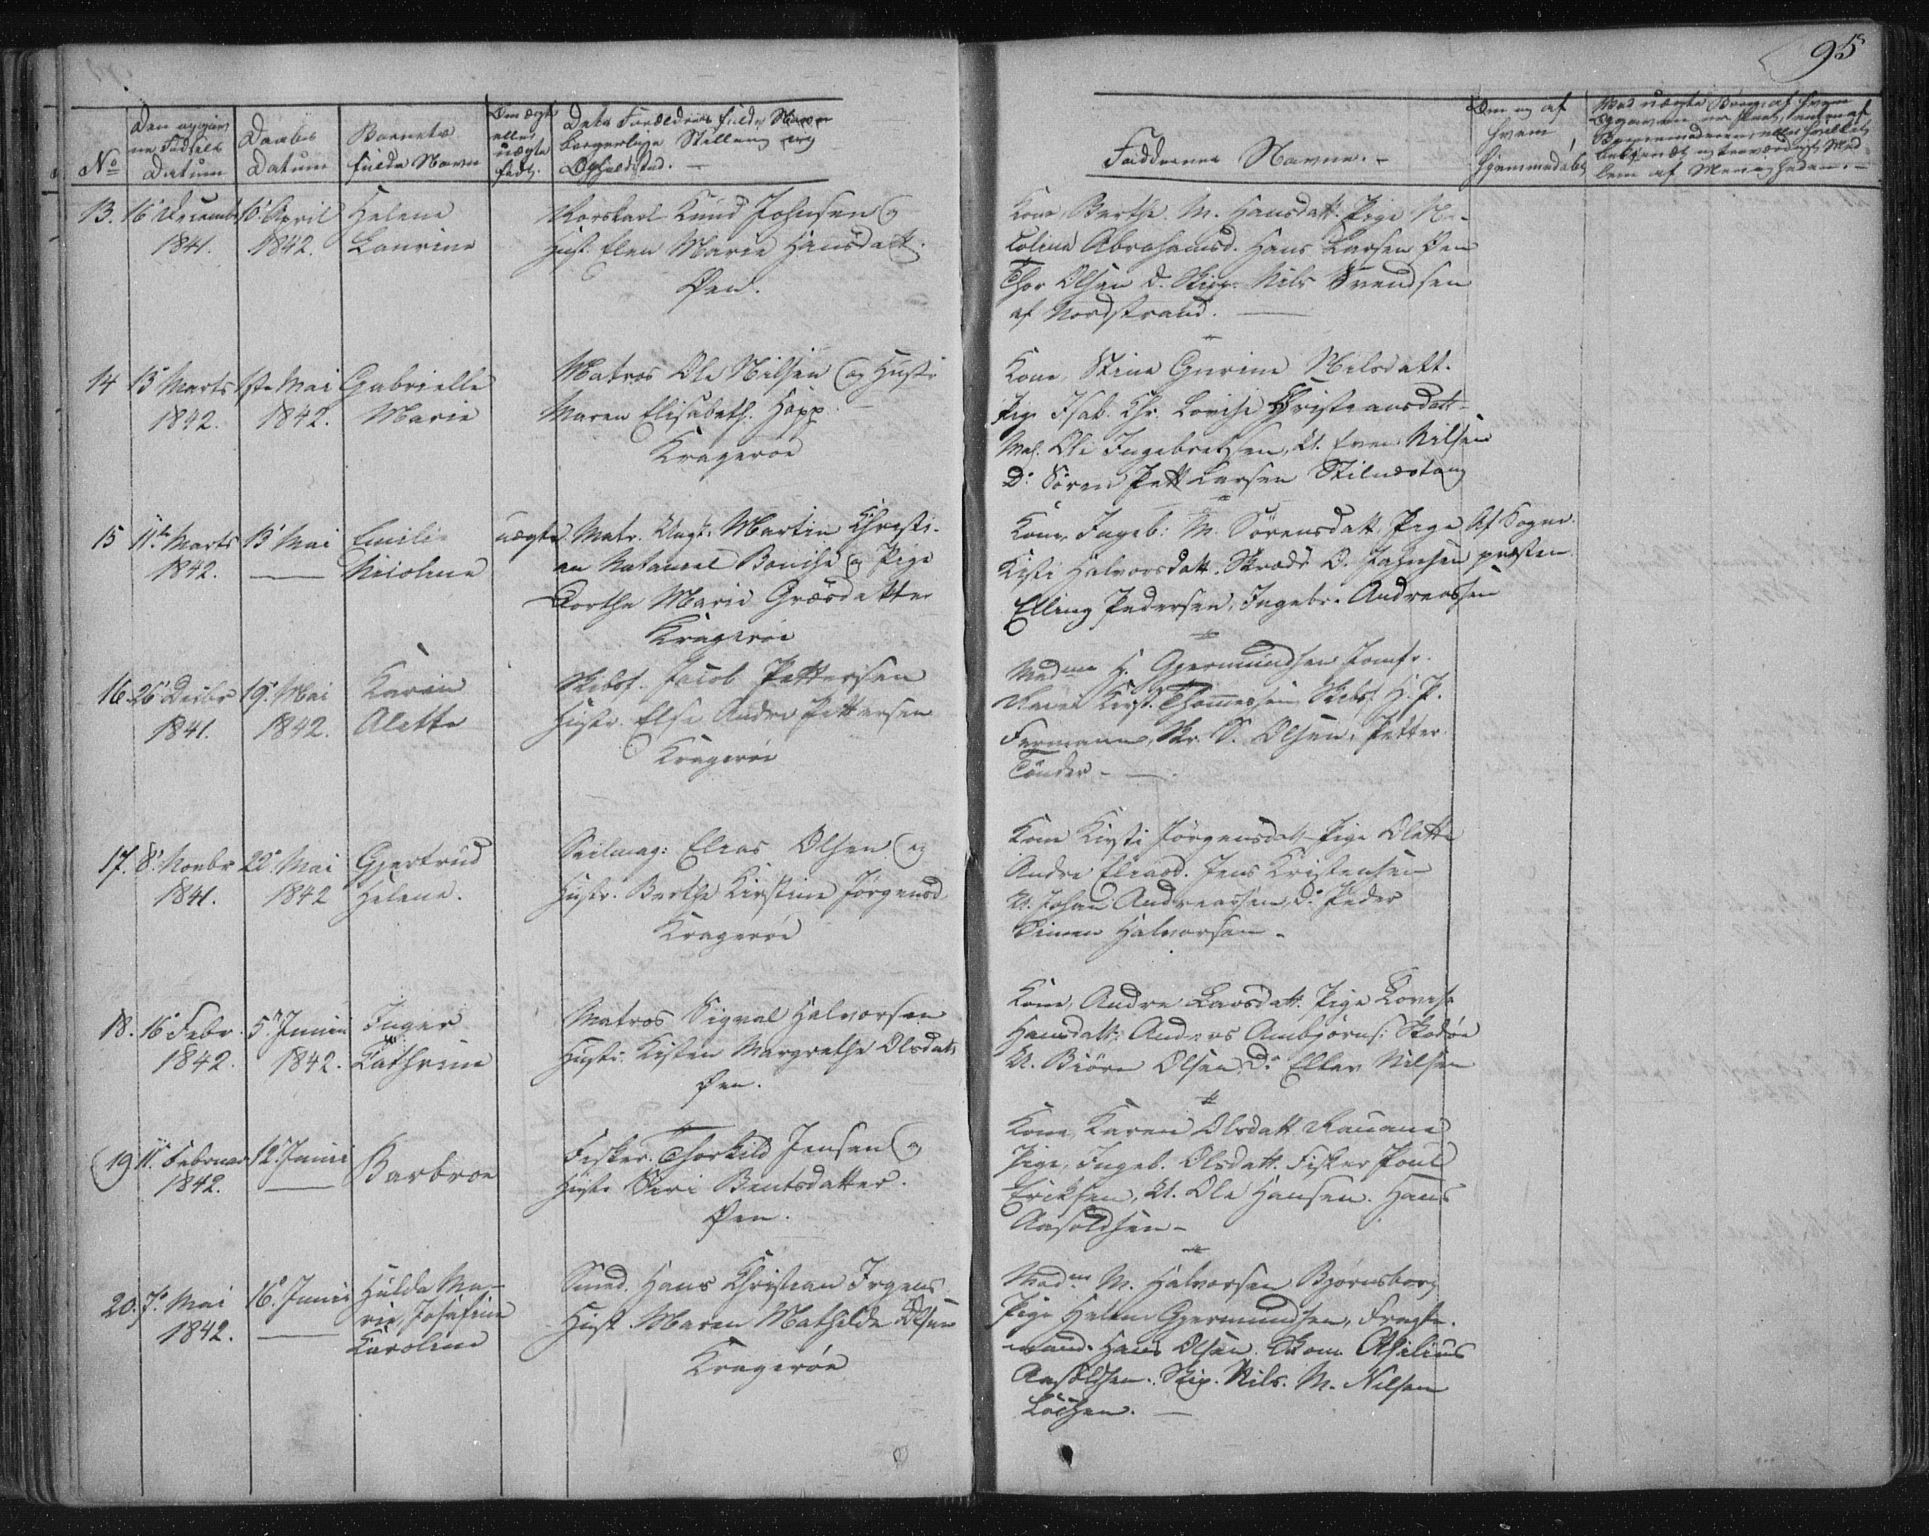 95
No
Den opgivne Fødsels Datum
Daabs Datum
Barnets fulde Navn
Om ægte eller uægte født.
Dets Forældres fulde Navn borgerlige Stilling og Opholdsted. -
Faddernes Navne. -
Om og af hvem hjemmedøbt
13. 16 Decemb 1841. 10 April 1842. Helene Laurine
Knud Johnsen og
Hust. Elen Marie Hansdatt.
Øen.
Kone Berthe. M. Hansdatt. Pige Ni-
coline Abrahamsd. Hans Larsen Øen
Thor Olsen d. Skipp. Nils Svendsen
af Nordstrand.
14 13 Marts 1842. 1ste Mai 1842. Gabrielle Marie
Matros Ole Nilsen og Hustr
Maren Elisabeth. Hopp.
Kragerøe
Kone, Stine Gurine Nilsdatt.
Pige Isab. Chr. Lovise Christiansdatt-
Mat. Ole Ingebretsen, U. Even Nilsen
Do Søren Pett Larsen Stilnæstang
15 11te Marts 1842. 13 Mai Emilie Nicoline
uægte
Matr. Ungk. Martin Christi-
an Nataneel og Pige
Dorthe Marie Græsdatter
Kragerøe
Kone, Ingeb: M. Sørensdatt, Pige
Kisti Halvorsdatt. Skræd: O. Jahnsen
Elling Pedersen, Ingebr. Andreassen
Af Sogne-
præsten.
16. 26 Decbr 1841. 19. Mai 1842. Karen Alette
Skibsf. Jacob Pettersen
Hustr. Else Andre Pettersen
Kragerøe
Madme H. Gjermundsen Jomfr.
Maren Kirst. Thommesen, Skibsf. H. P.
Fermann, Skr. S. Olsen, Petter
Tønder -
17. 8 Novbr 1841. 22 Mai 1842 Gjertrud Helene.
Seilmag: Elias Olsen og
Hustr. Berthe Kirstine Jørgensd.
Kragerøe
Kone Kirsti Jørgensdatt- Pige Olette
Andre Eliasd. Jens Kristensen
U. Johan Andreassen, Do Peder
Simen Halvorsen -
18. 16 Febr. 1842. 5 Junii 1842. Inger Cathrine
Matros Sigval Halvorsen
Hustr. Kisten Margrethe Olsdatt
Øen.
Kone, Andre Larsdatt. Pige Lovise
Hansdatt: Anders Anbjørns: Skadøe
U. Biørn Olsen, Do Ellev Nilsen
19 11. Februar 1842. 12. Junii Barbroe
Fisker. Thorkild Jensen og
Hustr Siri Bentsdatter.
Øen.
Kone, Karen Olsdatt
Pige, Ingeb. Olsdatt. Fisker Poul
Ericksen, U. Ole Hansen. Hans
Aasoldsen -
20. 7. Mai 1842. 16. Junii Hulda Ma-
rie, Josefine
Karoline
Smed. Hans Christian Irgens
Hust. Maren Mathilde Olsen
Kragerøe
Madm M. Halvorsen Bjørnsborg
Pige Helene Gjermundsen, Fragte-
mand. Hans Olsen. Skom.
Aasoldsen. Skip. Nils. M. Nilsen